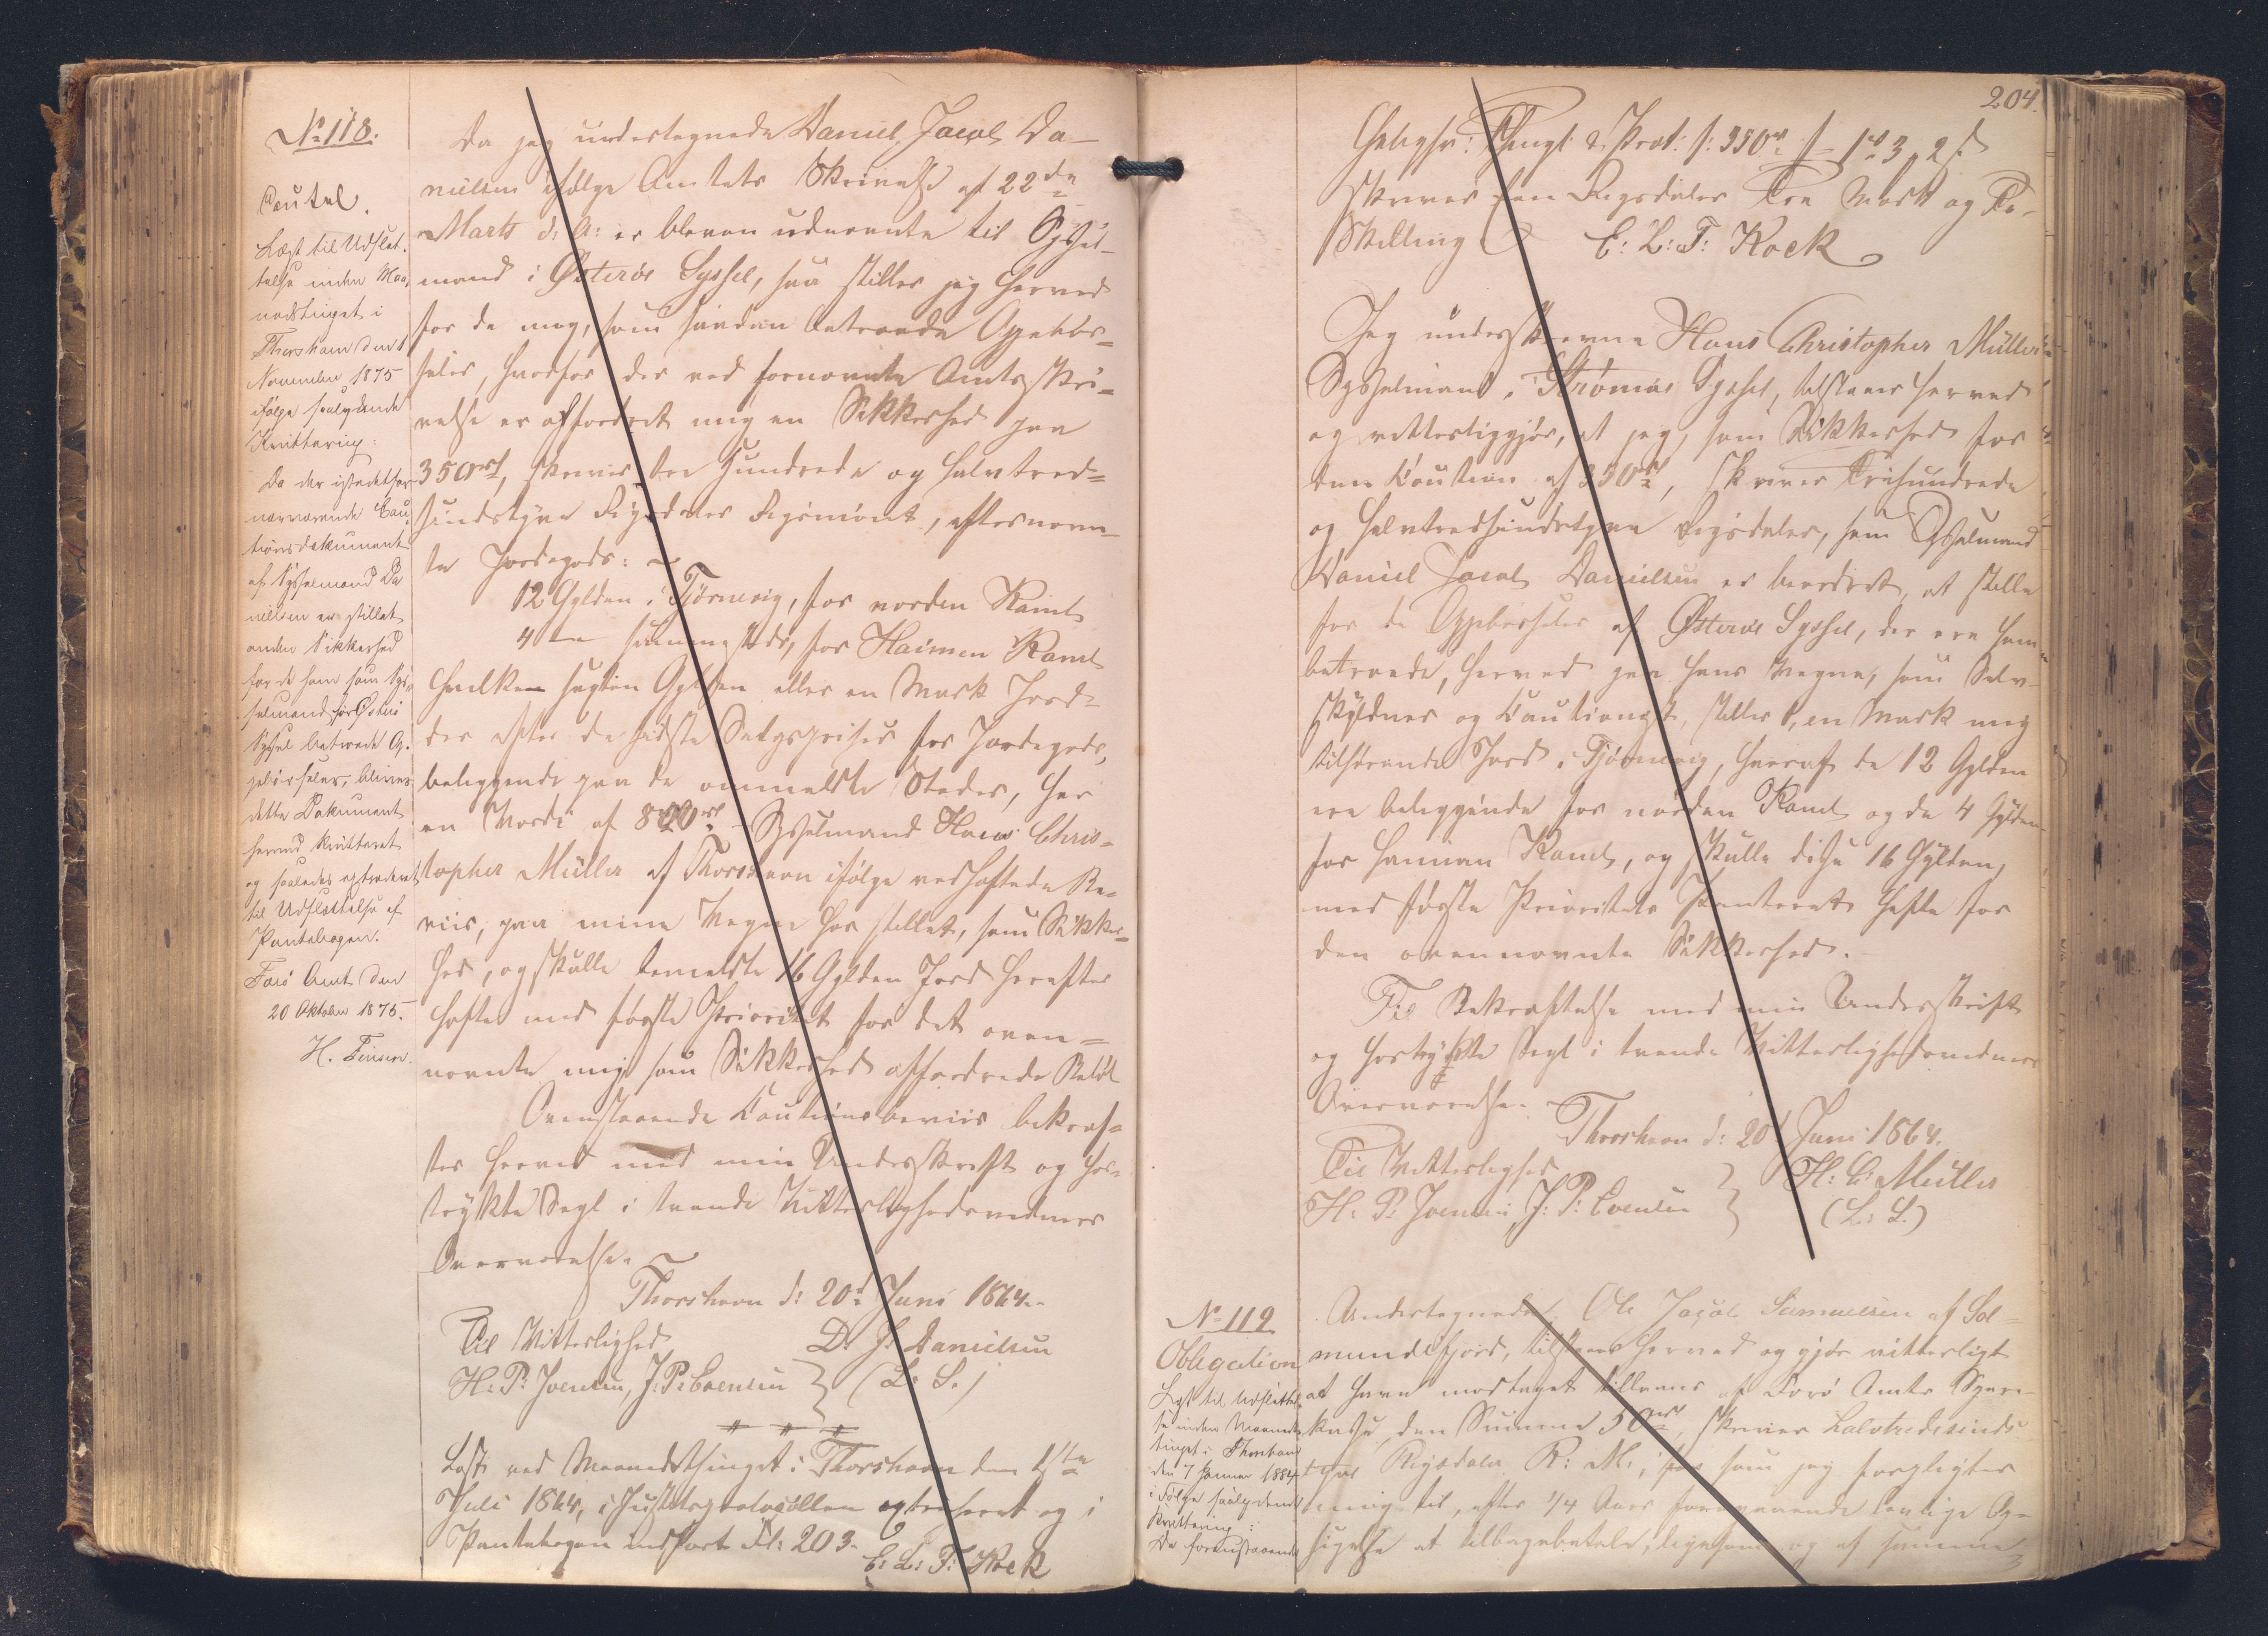 No 118.
Cautel.
Læst til Udslet-
telse inden Maa-
nedstinget i
Thorshavn den 1
November 1875
ifølge saalydende
Kvittering:
Da der istedetfor
nærværende Cau-
tionsdokument
af Sysselmand Da
nielsen er stillet
anden Sikkerhed
for de ham som Sys-
selmand for Østerø
Syssel betroede Op-
pebørseler, bliver
dette Dokument
herved kvitteret
og saaledes extraderet
til Udslettelse af
Pantebogen.
Færø Amt den
20 Oktober 1875.
H. Finsen.
Da jeg undertegnede Daniel Jacob Da-
nielsen ifølge Amtets Skrivelse af 22de
Marts d: A: er bleven udnævnte til Syssel-
mand i Østerøe Syssel, saa stiller jeg herved
for de mig, som saadan betroede Oppebør-
seler, hvorfor der ved fornævnte Amtsskri-
velse er affordret mig en Sikkerhed paa
350rd, skriver tre Hundrede og halvtred-
sindstyve Rigsdaler Rigsmønt, efternævn-
te Jordegods:
12 Gylden i Tjørnevig, for norden Kand
4 — sammesteds, for Haimen Kand
hvilken sexten Gylden eller en Mark Jord
der efter de sidste Salgspriser for Jordegods,
beliggende paa de ommeldte Steder, har
en Værdi af 800rd. Sysselmand Hans Chris-
topher Müller af Thorshavn ifølge vedhæftede Be-
viis, paa mine Vegne har stillet, som Sikker-
hed, og skulle bemeldte 16 Gylden Jord herefter
hæfte med første Prioritet for det oven-
nævnte mig som Sikkerhed affordrede Beløb
Ovenstaaende Cautionsbeviis bekræf-
tes herved med min Underskrift og hos-
trykte Segl i tvende Vitterlighedsvidners
Overværelse.
Thorshavn d: 20d Juni 1864.
Til Vitterlighed D: J: Danielsen
H: P: Joensen, J: P: Evensen } (L: S.)
Læst ved Maanedsthinget i Thorshavn den 1ste
Juli 1864, i Justitsprotocollen extraheret og i
Pantebogen indført Fol: 203.
E: L: T: Kock
204.
2 Prot: f: 350rd 1rd 3 2 s
skriver Een Rigsdaler Tre Mark og To
Skilling E: L: T: Kock
Jeg underskrevne Hans Christopher Müller
Sysselmand i Strømøe Syssel, tilstaaer herved
og vitterliggjør, at jeg, som Sikkerhed for
den Caution af 350rd, skriver Trehundrede
og halvtredsindstyve Rigsdaler, som Sysselmand
Daniel Jacob Danielsen er beordret, at stille
for de Oppebørseler af Østerøe Syssel, der ere ham
betroede, herved paa hans Vegne, som Selv-
skyldner og Cautionist, stiller en Mark mig
tilhørende Jord i Tjørnevig, hvoraf de 12 Gylden
ere beliggende for norden Kand og de 4 Gylden
for Haiman Kand, og skulle disse 16 Gylden,
med første Prioritets Panteret hefte for
den ovennævnte Sikkerhed.
Til Bekræftelse med min Underskrift
og hostrykte Segl i tvende Vitterlighedsvidners
Overværelse.
Thorshavn d: 20d Juni 1864.
Til Vitterlighed H: C: Müller
H: P: Joensen, J: P: Evensen } (L: S.)
No 119
Obligation
Læst til Udslettel-
se inden Maaneds-
tinget i Thorshavn
den 7 Januar 1884
i Følge saalydende
Kvittering:
Da foranstaaende
Undertegnede Ole Jacob Samuelsen af Sal-
mundefjord, tilstaaer herved og gjør vitterligt
at have modtaget tillaans af Færø Amts Spare-
kasse, den Summa 50rd, skriver halvtredsinds-
tyve Rigsdaler R: M:, som jeg forpligter
mig til, efter 1/4 Aars foregaaende lovlige Op-
sigelse at tilbagebetale, ligesom og af samme